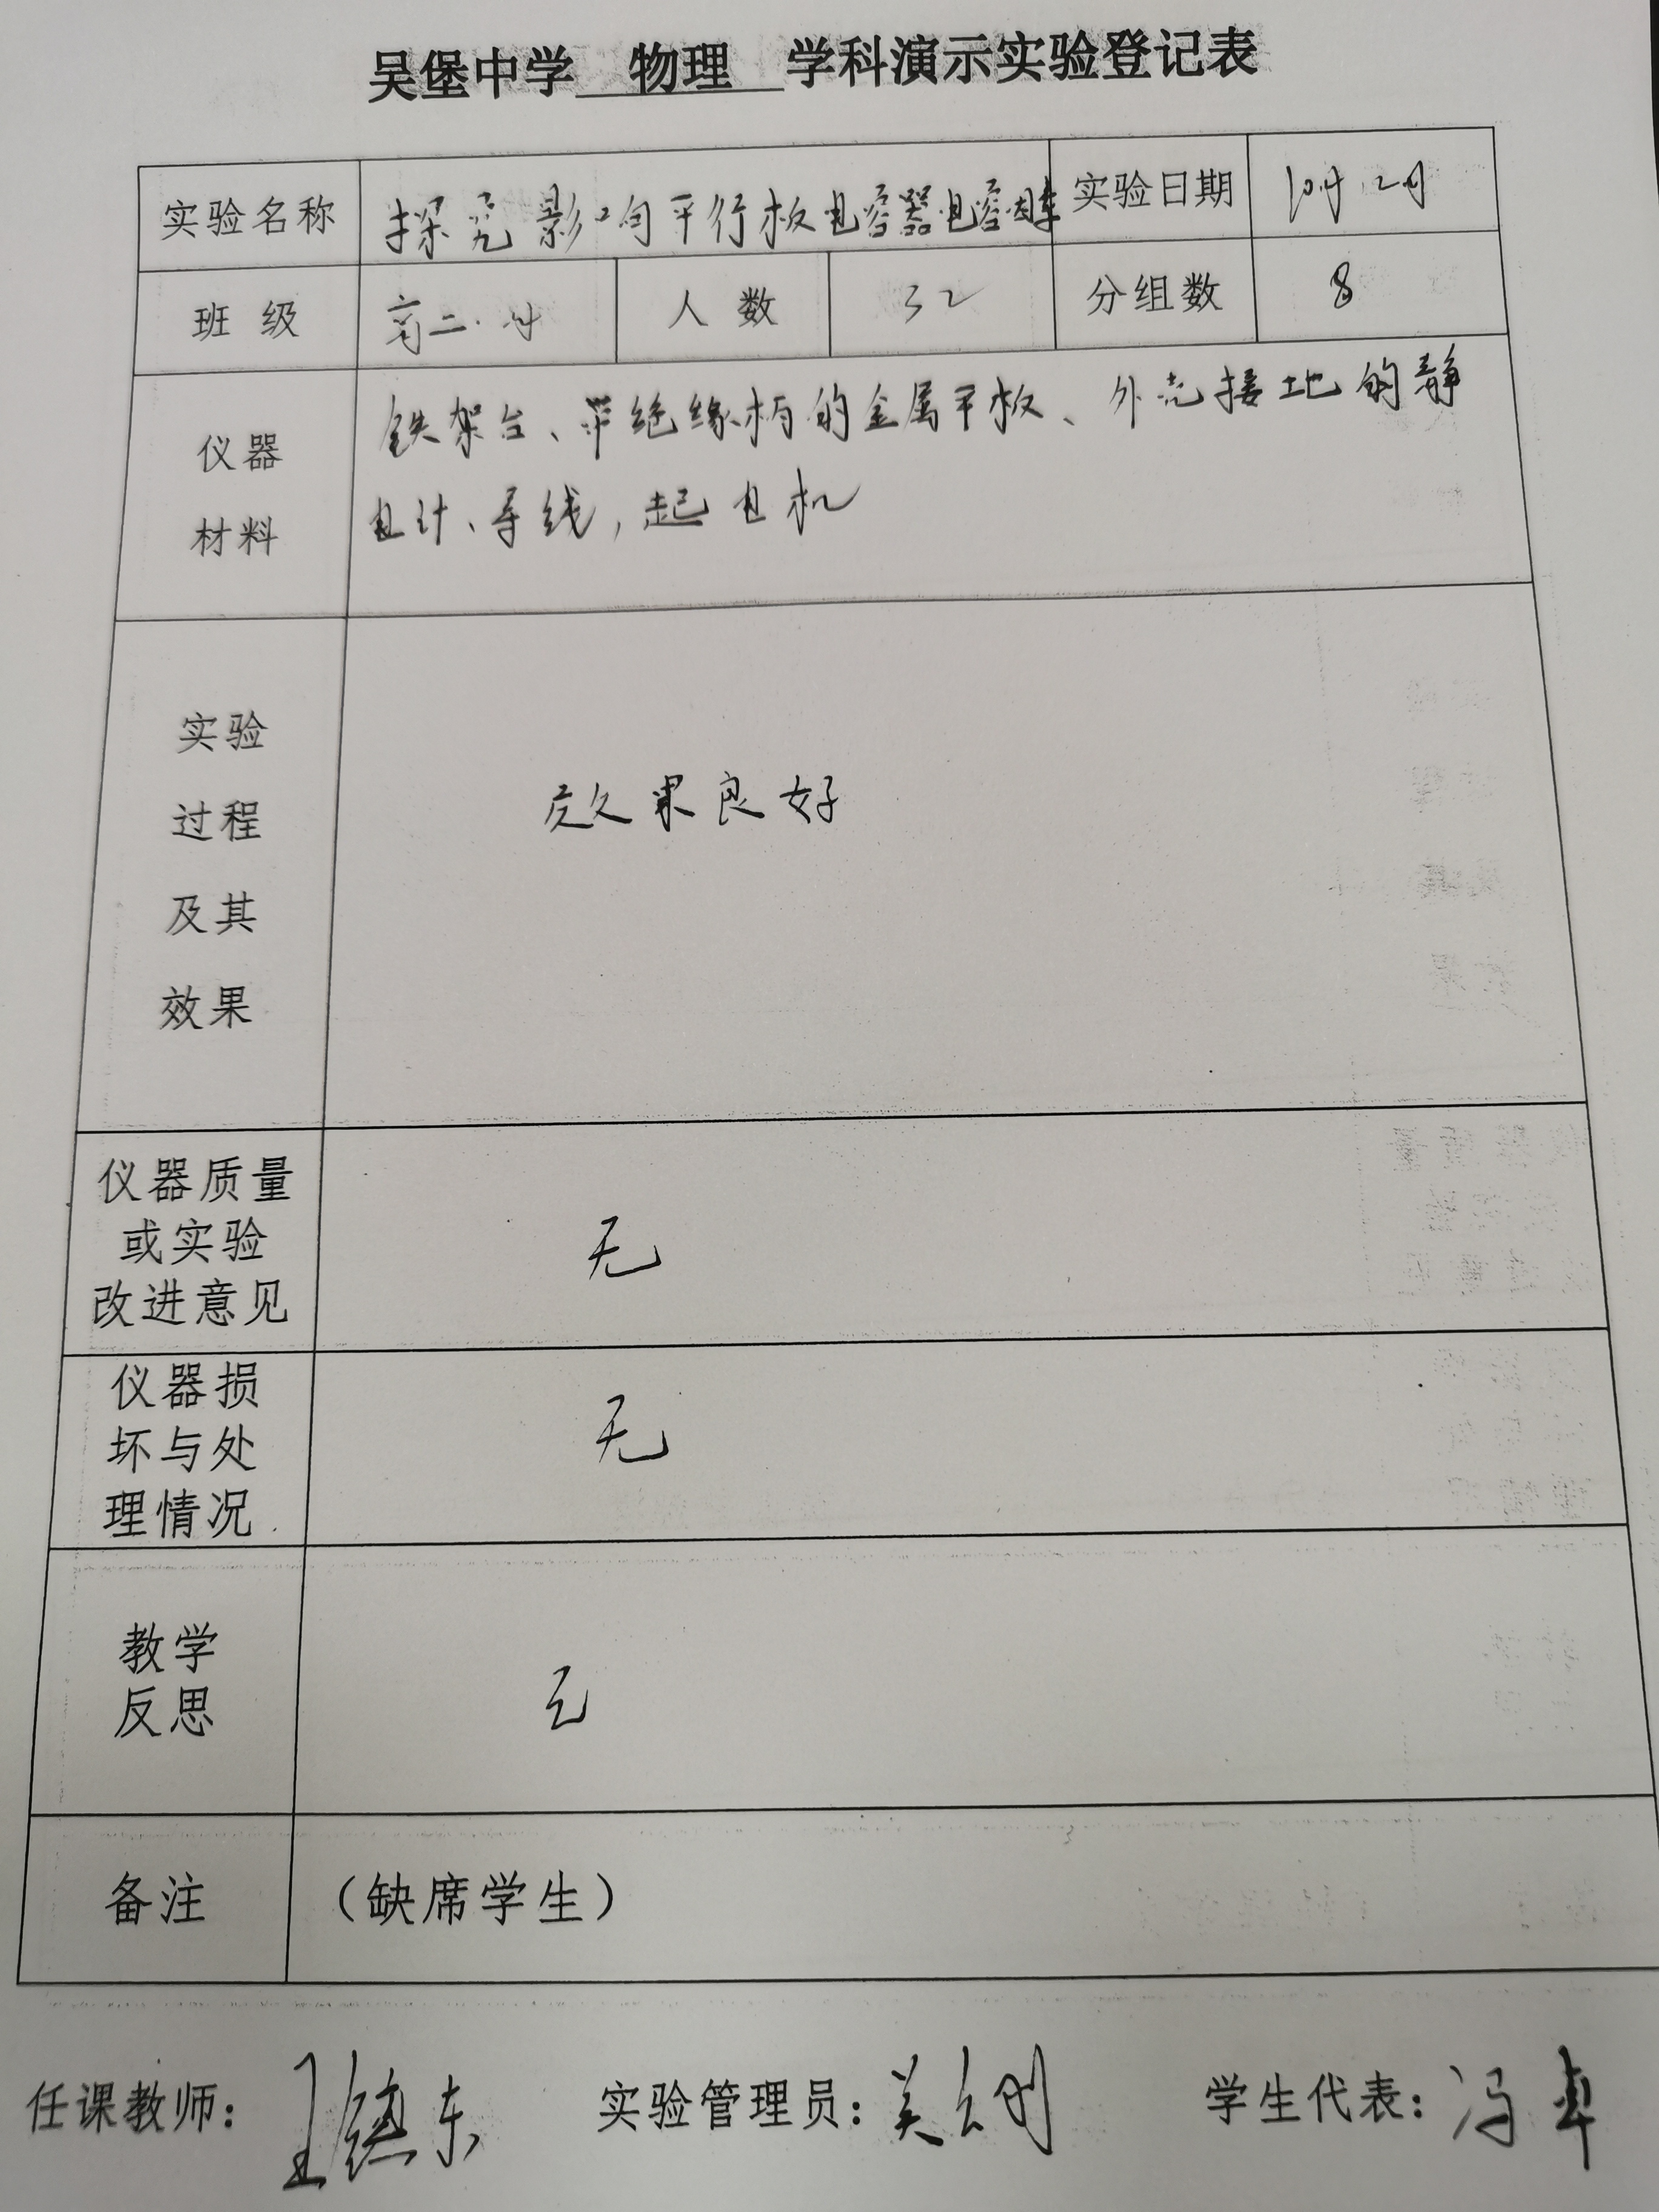 吴堡中学 物理 学科演示实验登记表
实验名称 探究影响平行板电容器电容因素 实验日期
班 级 高二· 人 数 32 分组数 8
仪器 材料 铁架台、带绝缘柄的金属平板、外壳接地的静
电计、导线,起电机
实验
过程
及其
效果
效果良好
仪器质量
或实验
改进意见
无
仪器损
坏与处
理情况
无
教学
反思
无
备注 (缺席学生)
任课教师: 实验管理员: 学生代表:冯